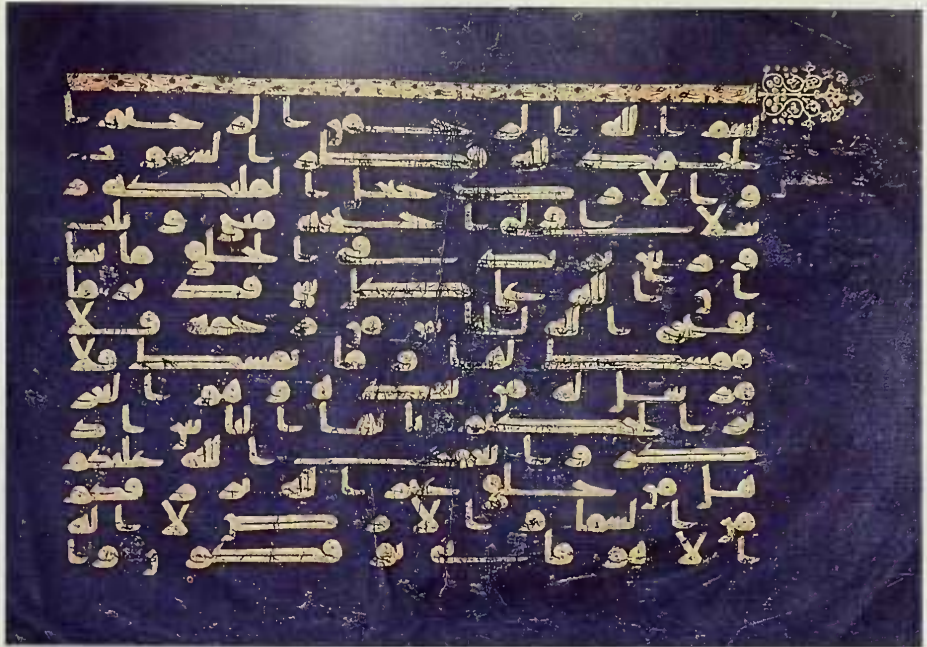 بسم الله الرحمن الرحيم ا
لحمد لله فطر السمو ت
و الارض جعل الملئكة ر
سلا اولى اجنحة مثنى و ثلث
و ربع يزيد فى الخلق ما يشا
ا ن الله على كل شى قدير ما
يفتح الله للناس من رحمة فلا
ممسك لها و ما يمسك فلا
مرسل له من بعده و هو العز
يز الحكيم يايها الناس اذ
كروا نعمت الله عليكم
هل من خلق غير الله يرزقكم
من السما و الارض لا اله
الا هو فانى توفكون و ا